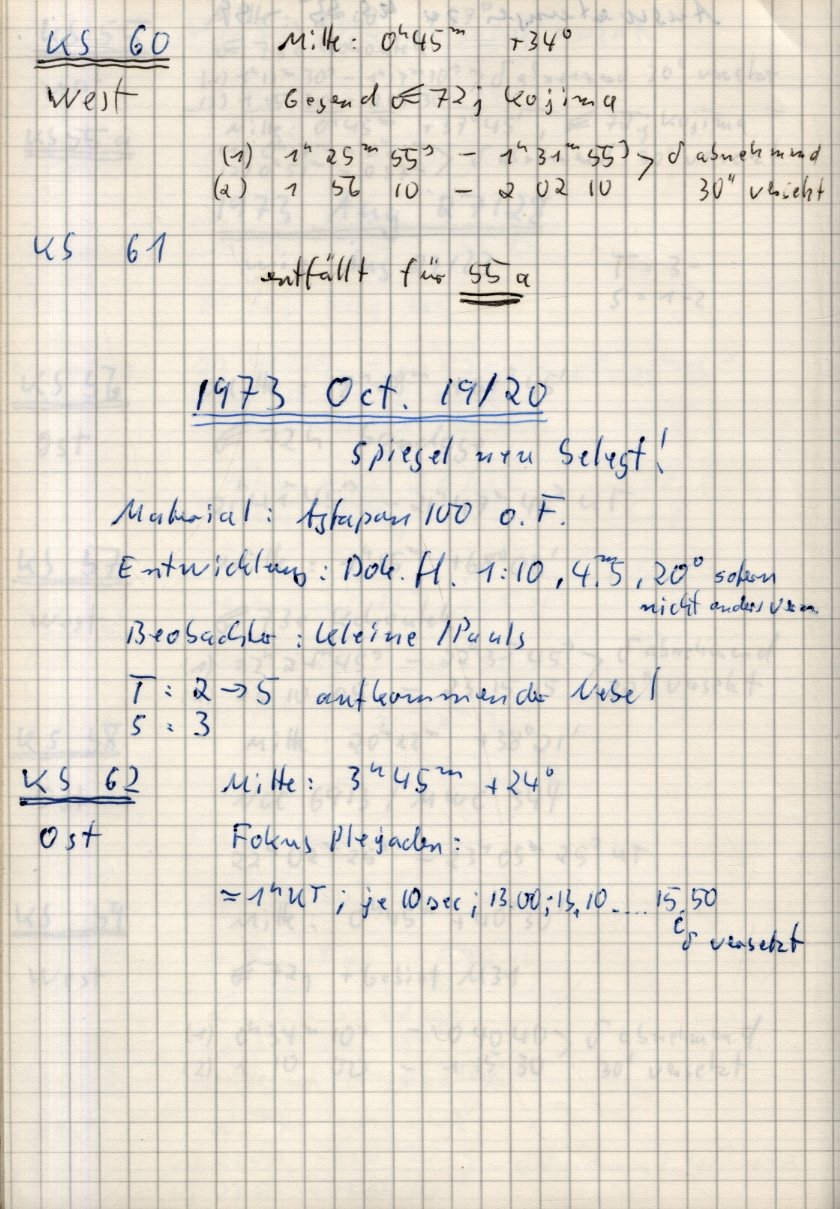 KS 60 Mitte: 0ʰ45ᵐ +34°
West Gegend ☄ 72j Kojima
(1) 1ʰ 25ᵐ 55ˢ – 1ʰ 31ᵐ 55ˢ > δ abnehmend
(2) 1 56 10 – 2 02 10 30" versetzt
KS 61
entfällt für 55a
1973 Oct. 19/20
Spiegel neu belegt!
Material: Agfapan 100 o.F.
Entwicklung: Dok. fl. 1:10, 4ᵐ.5, 20° sofern
nicht anders verm.
Beobachter: Kleine / Pauls
T: 2 → 5 aufkommender Nebel
S: 3
KS 62 Mitte: 3ʰ45ᵐ +24°
Ost Fokus Plejaden:
≈ 1ʰ UT; je 10 sec; 13.00; 13.10 .... 15.50
δ versetzt